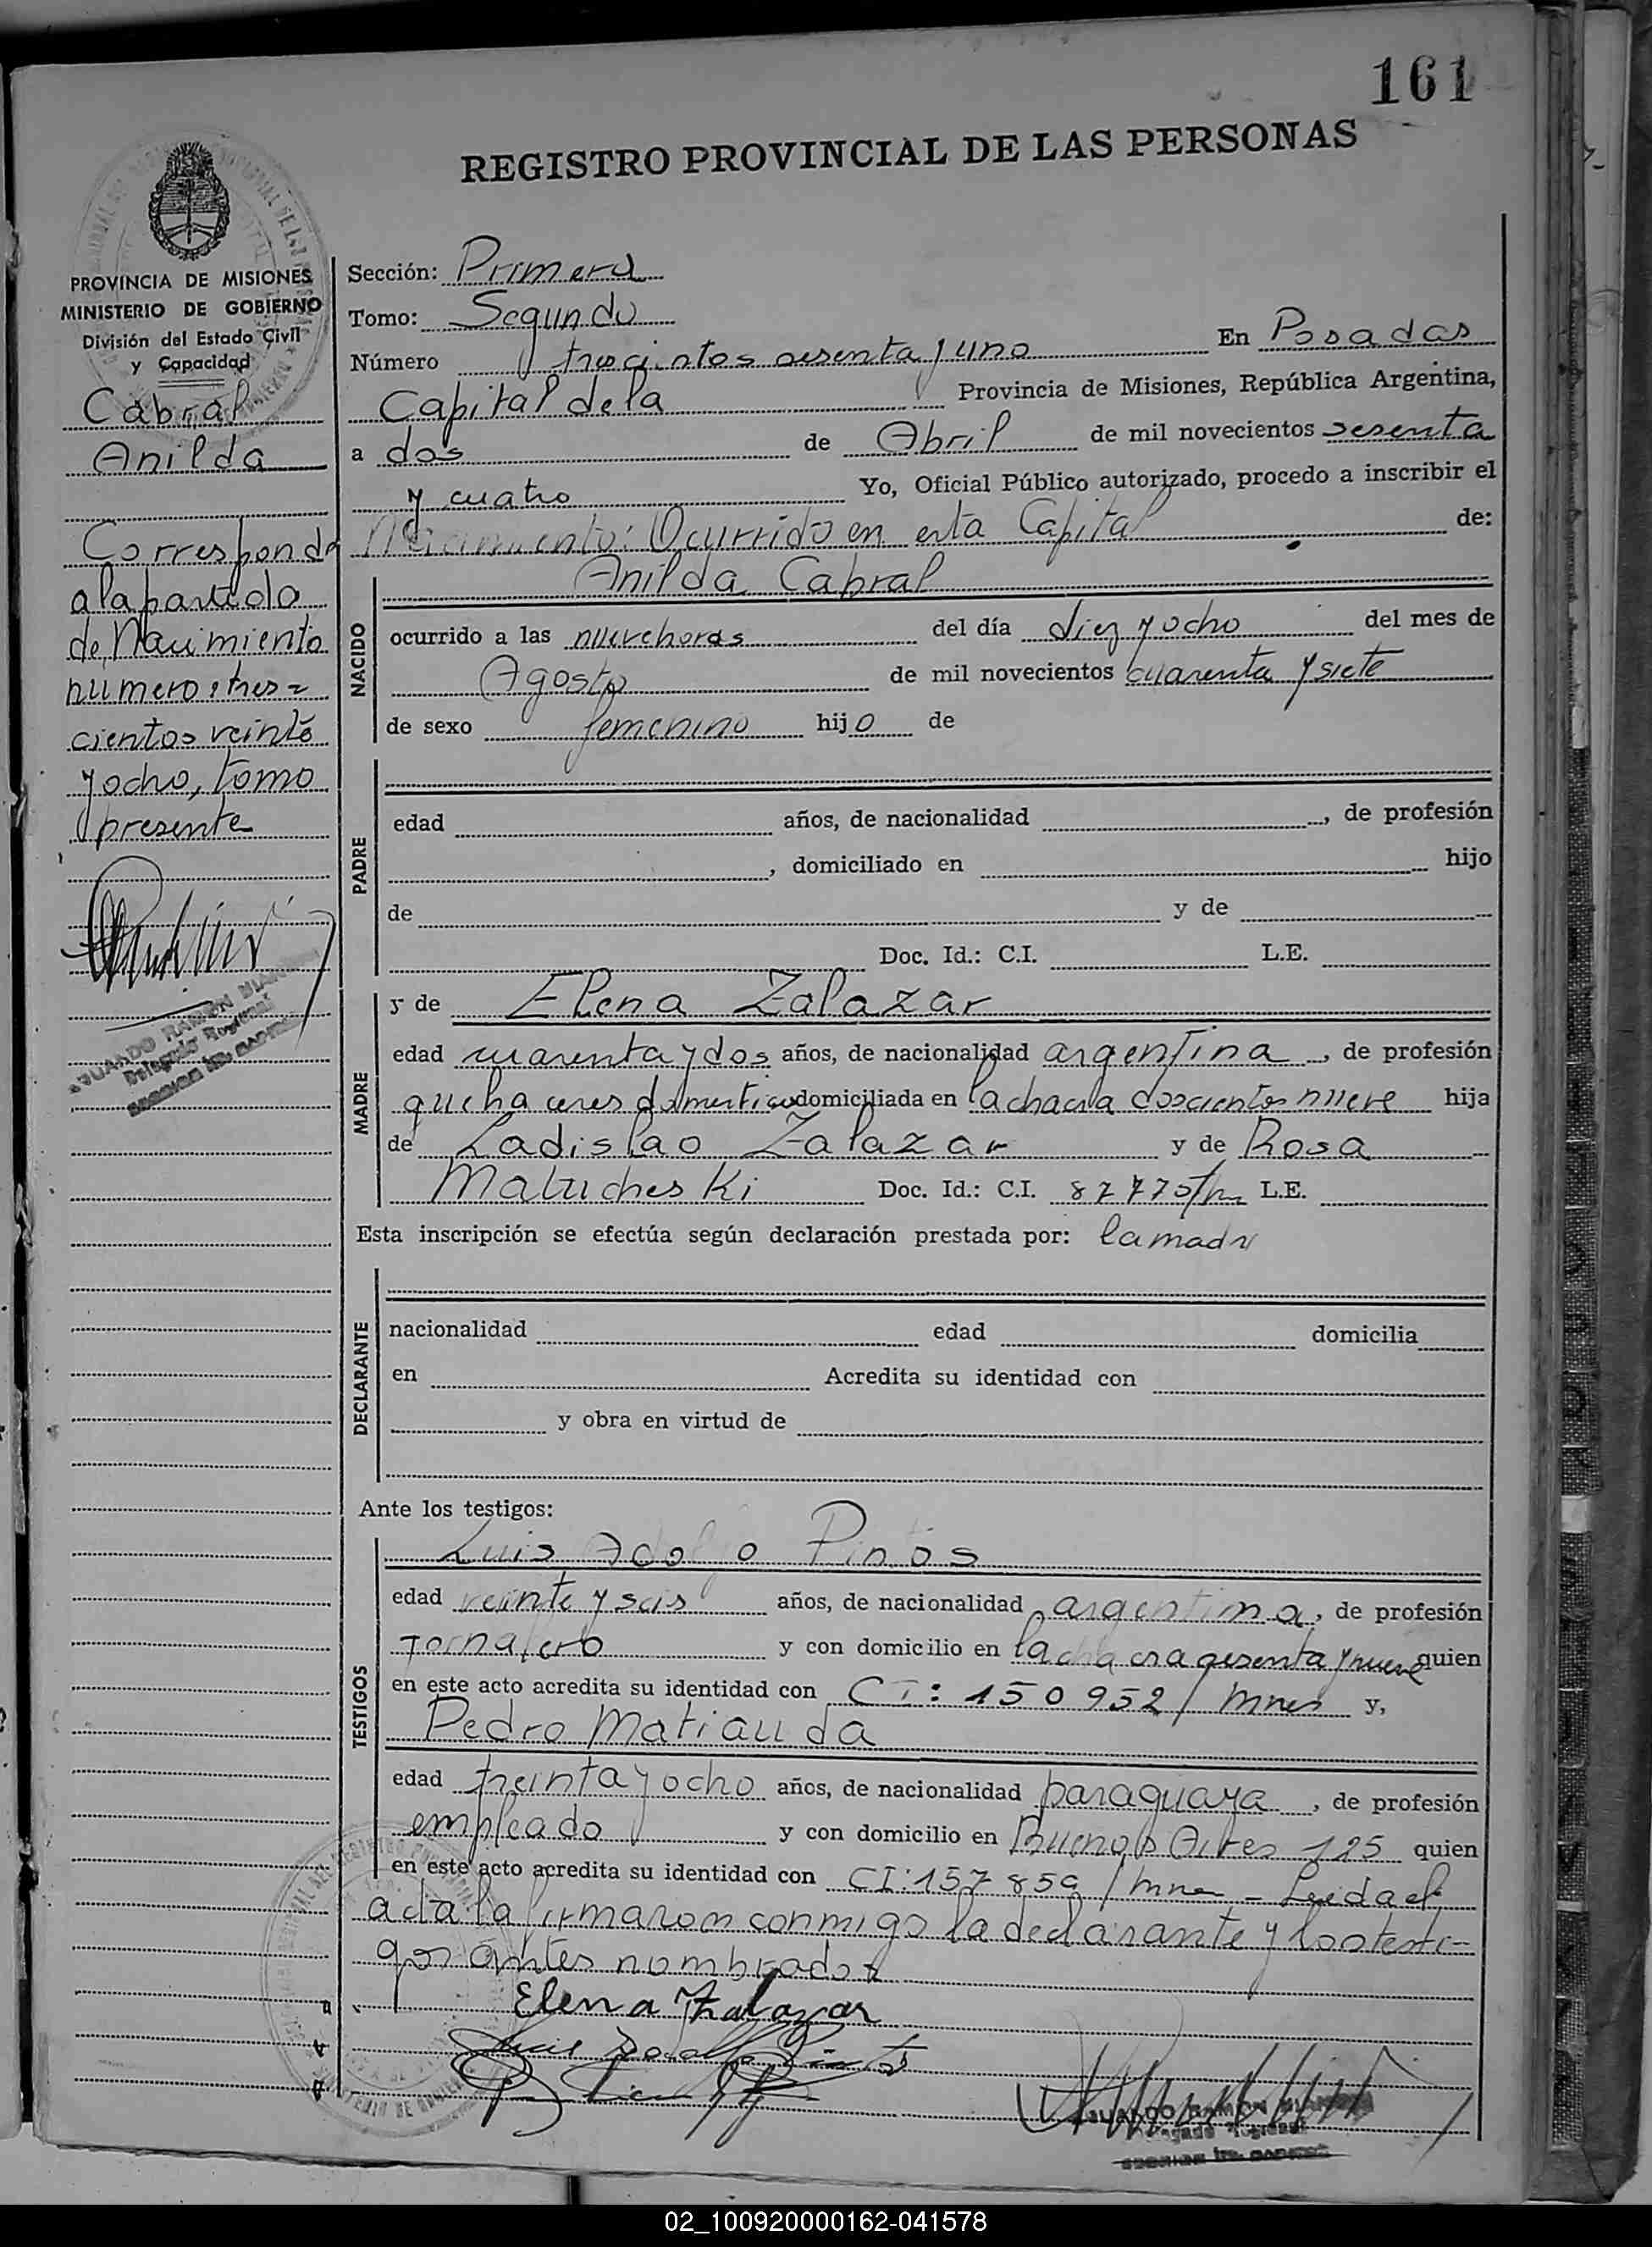 161
REGISTRO PROVINCIAL DE LAS PERSONAS
PROVINCIA DE MISIONES
MINISTERIO DE GOBIERNO
División del Estado Civil
y Capacidad
Cabral
Anilda
Corresponde
a la partida
de Nacimiento
numero: tres=
cientos veinte
y ocho, tomo
presente
Sección: Primera
Tomo: Segundo
Número trescientos sesenta y uno En Posadas
Capital de la Provincia de Misiones, República Argentina,
a dos de Abril de mil novecientos sesenta
y cuatro Yo, Oficial Público autorizado, procedo a inscribir el
Nacimiento: Ocurrido en esta Capital de:
NACIDO
Anilda Cabral
ocurrido a las nueve horas del día diez y ocho del mes de
Agosto de mil novecientos cuarenta y siete
de sexo femenino hijo de
PADRE
edad años, de nacionalidad , de profesión
, domiciliado en hijo
de y de
Doc. Id.: C.I. L.E.
MADRE
y de Elena Zalazar
edad cuarenta y dos años, de nacionalidad argentina , de profesión
quehaceres domesticos domiciliada en la chacra doscientos nueve hija
de Ladislao Zalazar y de Rosa
Matucheski Doc. Id.: C.I. L.E.
Esta inscripción se efectúa según declaración prestada por: la madre
DECLARANTE
nacionalidad edad domicilia
en Acredita su identidad con
y obra en virtud de
Ante los testigos:
TESTIGOS
Luis Adolfo Pintos
edad veinte y seis años, de nacionalidad argentina, de profesión
Jornalero y con domicilio en la chacra sesenta y nueve quien
en este acto acredita su identidad con CI: 150952/mnes y,
Pedro Matiauda
edad treinta y ocho años, de nacionalidad paraguaya , de profesión
empleado y con domicilio en Buenos Aires 125 quien
en este acto acredita su identidad con CI: 157859/mnes - Leida el
acta la firmaron conmigo la declarante y los testi-
gos antes nombrados
Elena Zalazar
02_100920000162-041578